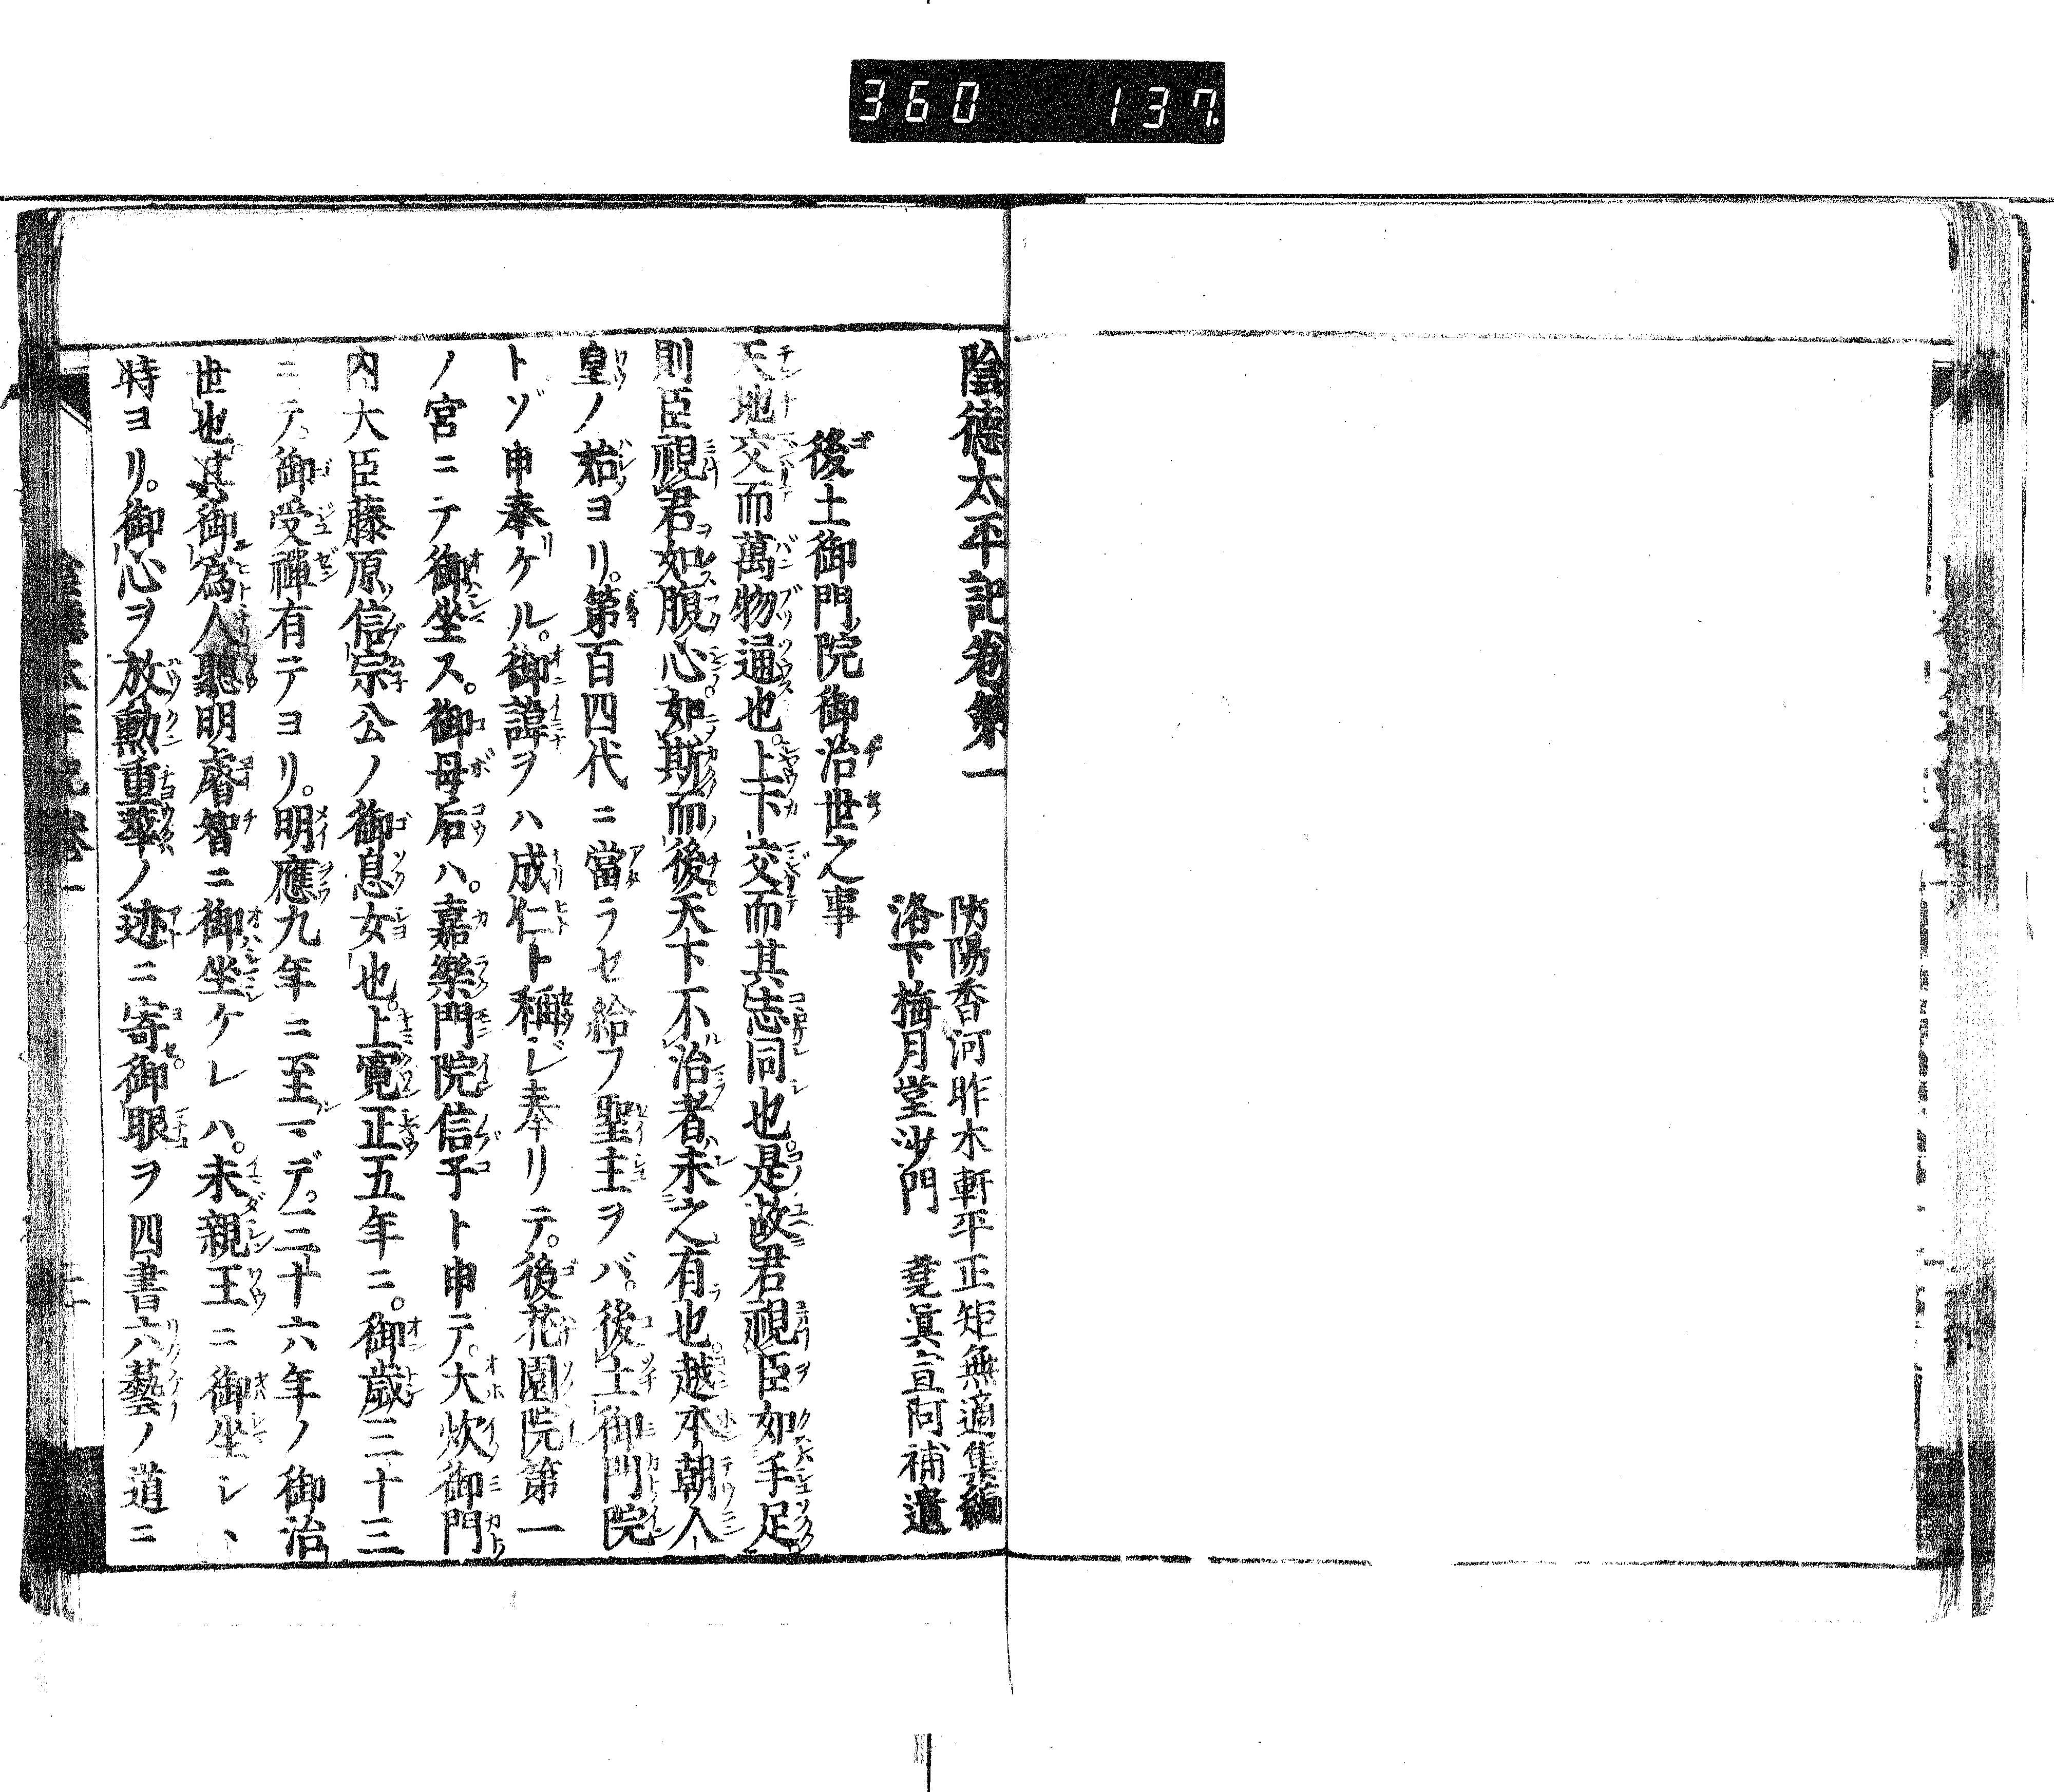 360 137
陰徳太平記巻第一
防陽香河昨木軒平正矩無適集編
洛下梅月堂沙門 堯真宣阿補遺
後土御門院御治世之事
天地交而萬物通也。上下交而其志同也。是故君視臣如手足
則臣視君如腹心。如斯而後天下不治者未之有也。越本朝人
皇ノ始ヨリ。第百四代ニ當ラセ給フ聖主ヲバ。後土御門院
トゾ申奉ケル。御諱ヲハ成仁ト稱ジ奉リテ。後花園院第一
ノ宮ニテ御坐ス。御母后ハ。嘉樂門院信子ト申テ。大炊御門
内大臣藤原信宗公ノ御息女也。上寛正五年ニ。御歳三十三
ニテ。御受禪有テヨリ。明應九年ニ至マデ。三十六年ノ御治
世也。其御為人聰明睿智ニ御坐ケレハ。未親王ニ御坐シヽ
時ヨリ。御心ヲ放勳重華ノ迹ニ寄。御眼ヲ四書六藝ノ道ニ